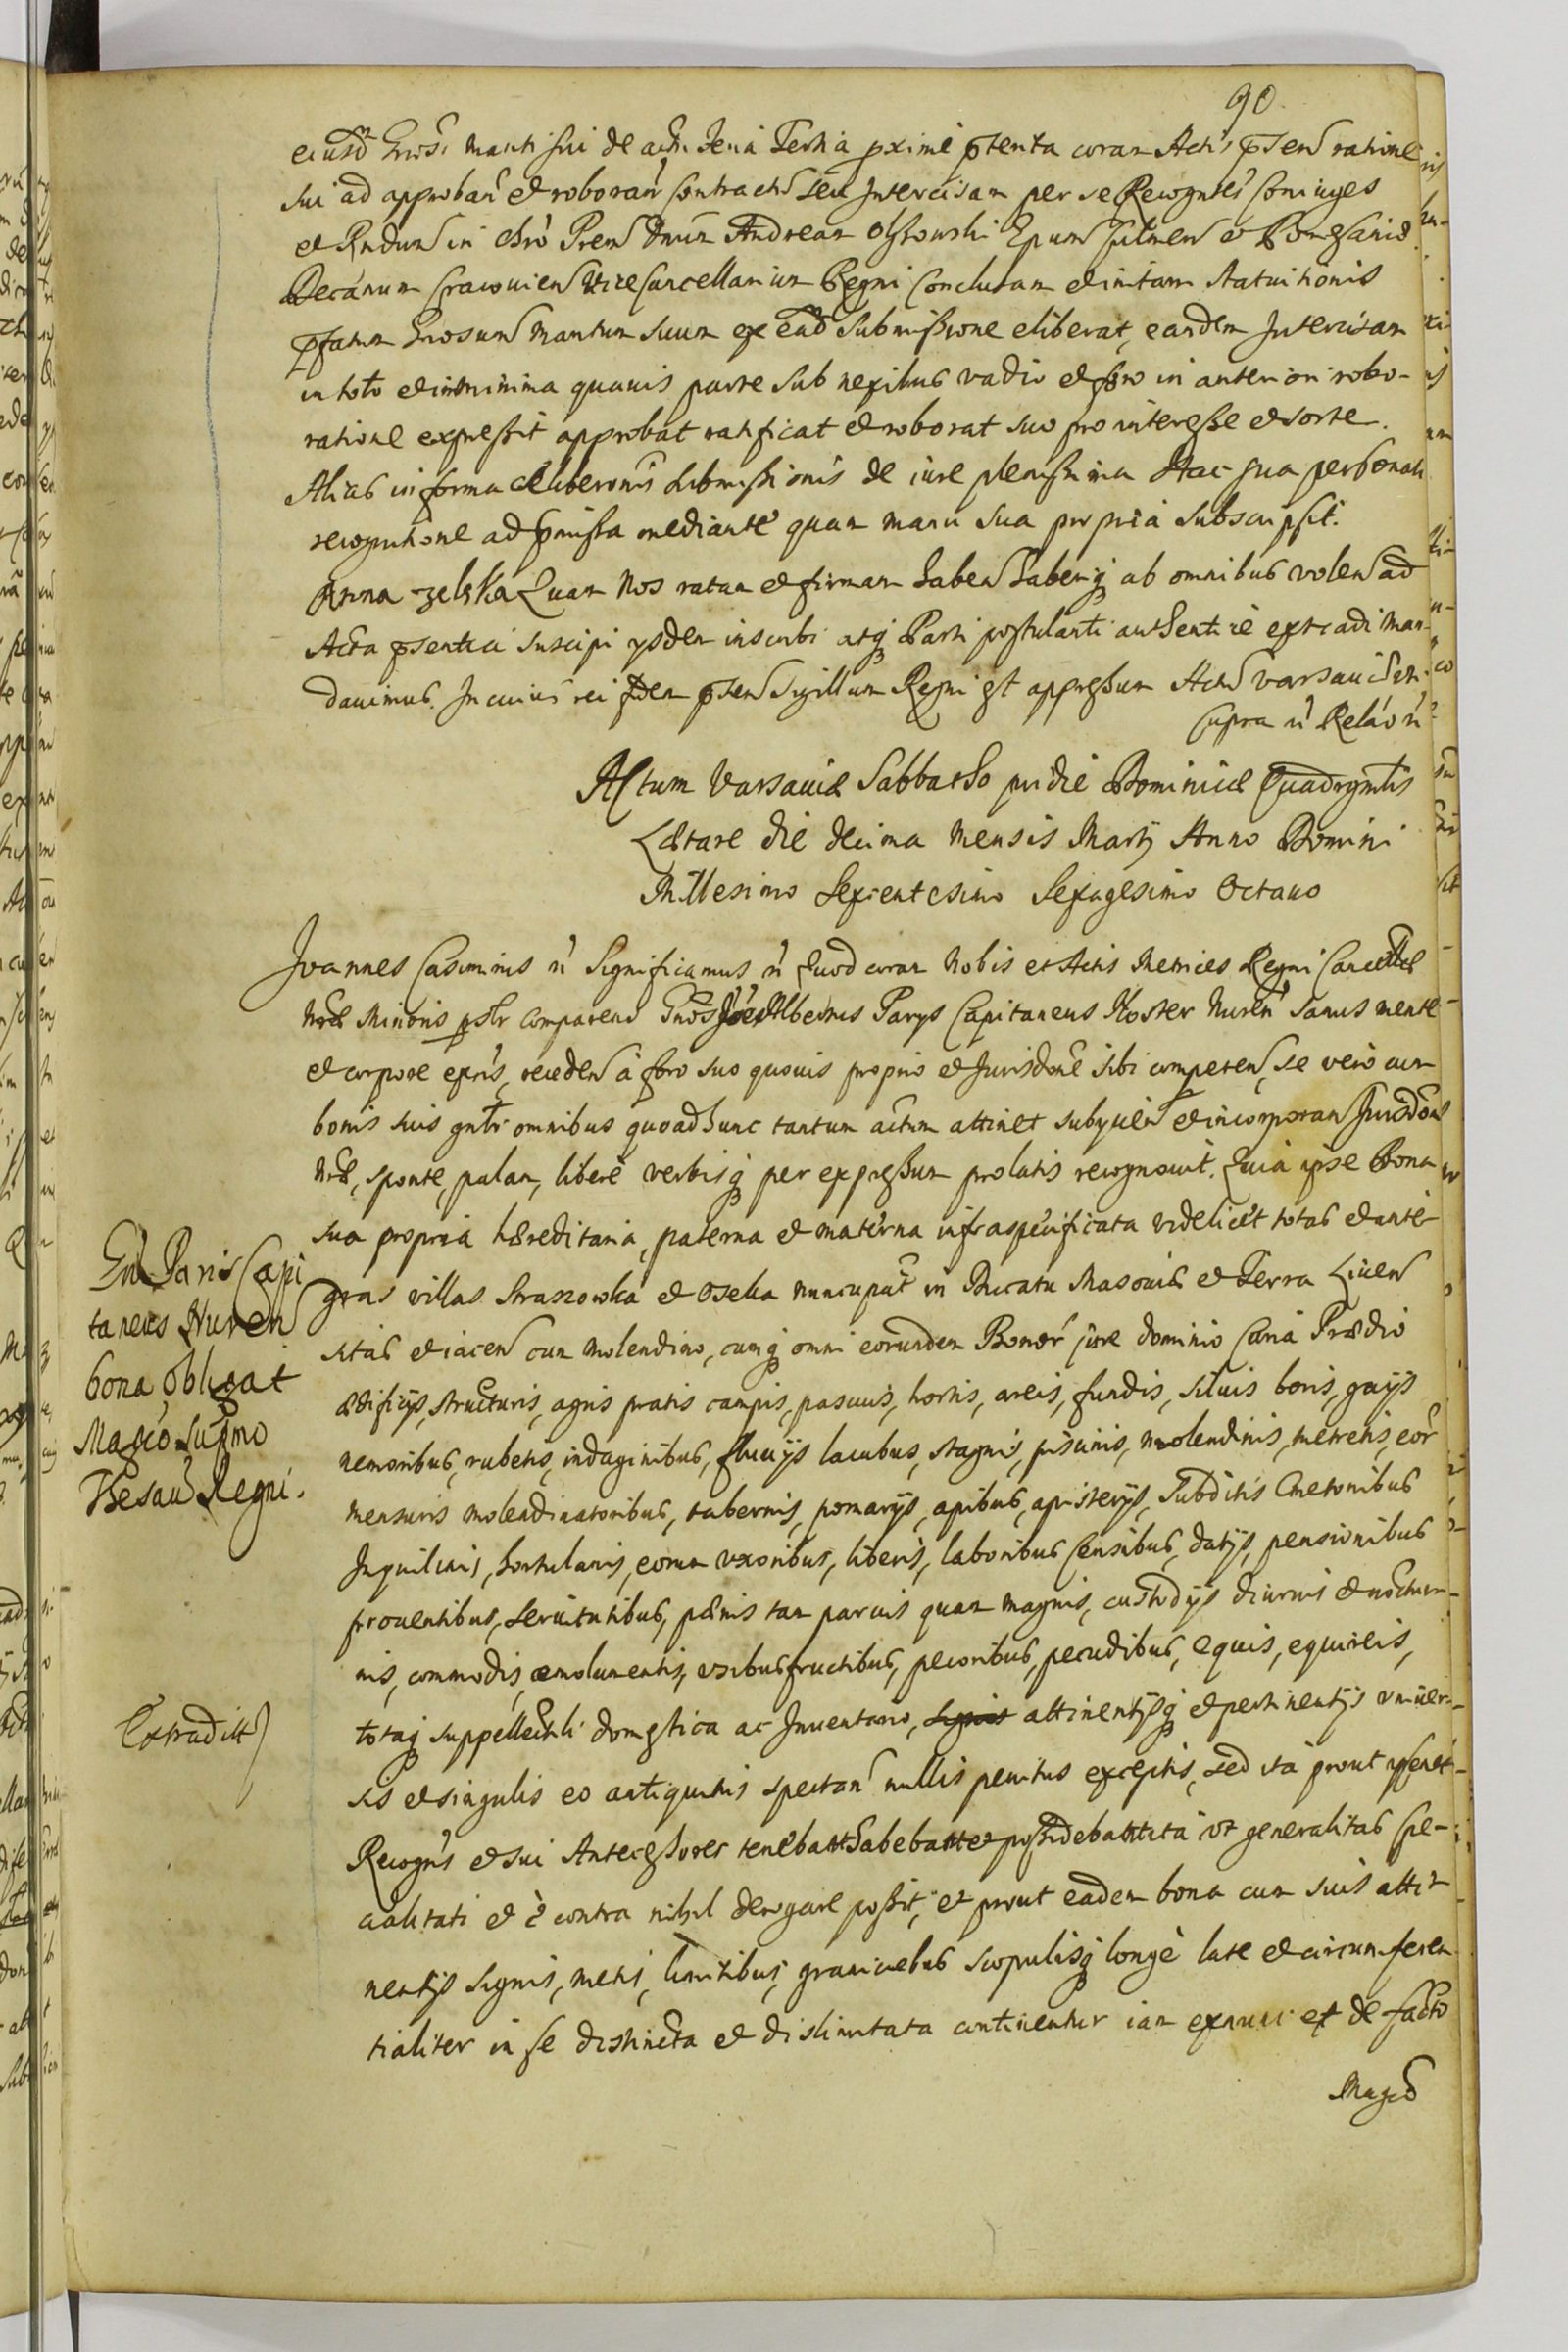 90.
eiusd Gnosi mariti sui de actu feria Tertia pxime ptenta coram Actis psen ratione
sui ad approban et roboran contractu seu Intercisam per se Recogntes Coniuges
et Rndum in Chro Prem Dnum Andream Olszowski Epum Culmen et Pomesanie
Decanum Cracouien ViceCancellarium Regni Conclusam et initam statuitionis
pfatum Gnosum maritum suum ex ead submissione eliberat, eandem Intercisam
in toto et in minima quauis parte sub nexibus vadio et foro in anteriori robo-
ratione expressit approbat ratificat et roborat suo pro interesse et sorte.
Alias in forma eliberonis submissionis de iure plenissima Hac sua personali
recognitione ad pmissa mediante quam manu sua propria subscripsit.
Anna zelska Quam Nos ratam et firmam haben haberiq ab omnibus volen ad
Acta psentia suscipi ysdem inscribi atq Parti postulanti authentice extradi man-
dauimus. In cuius rei fidem psen Sigillum Regni est appressum Actu Varsauie ut
supra n Relao n
Actum Varsauiæ Sabbatho pridie Dominicæ Quadrgmlis
Lætare die decima Mensis Martij Anno Domini
Millesimo Sexcentesimo Sexagesimo Octauo
Joannes Casimirus n Significamus n Quod coram Nobis et Actis Metrices Regni Cancellæ
Nræ Minoris pslr comparens Gnos Albertus Parys Capitaneus Noster Nuren Sanus mente
et corpore exns, receden a foro suo quouis proprio et Jurisdone sibi competen, se vero cum
bonis suis gnlr omnibus quoad hunc tantum actum attinet subycien et incorporan Jurisdoni
Nræ, sponte, palam, libere verbisq per expressum prolatis recognouit. Quia ipse Bona
sua propria hæreditaria, paterna et materna infraspecificata videlicet totas et inte-
gras villas Straszowka et Osella nuncupat in Ducatu Masouiæ et Terra Liuen
sitas et iacen cum molendino, cumq omni eorundem Bonor jure dominio Curia Prædio
ædificijs, structuris, agris pratis campis, pascuis, hortis, areis, fundis, siluis boris, gaijs
nemoribus, rubetis, indaginibus, fluuijs lacubus, stagnis, piscinis, molendinis, metretis, eor
mensuris molendinatoribus, tabernis, pomarijs, apibus, apisterijs, Subditis Cmetonibus
Inquilinis, hortulanis, eorum vxoribus, liberis, laboribus Censibus, datijs, pensionibus
prouentibus, seruitutibus, pænis tam paruis quam magnis, custodijs diurnis et noctur-
nis, commodis, emolumentis, vsibusfructibus, pecoribus, pecudibus, equis, equireis,
totaq suppellectili domestica ac Inuentario, attinentijsq et pertinentijs vniuer-
sis et singulis eo antiquitus spectan nullis penitus exceptis, sed ita prout ipsemet
Recogns et sui Antecessores tenebant habebant et possidebant ita vt generalitas spe-
cialitati et è contra nihil derogare possit, et prout eadem bona cum suis atti-
nentijs signis, metis, limitibus, graniciebus scopulisq longè late et circumferen-
tialiter in se distincta et dislimitata continentur iam exnunc et de facto
Magco
Gn Paris Capi
taneus Nuren
bona obligat
Magco Supmo
Thesau Regni.
Extradit